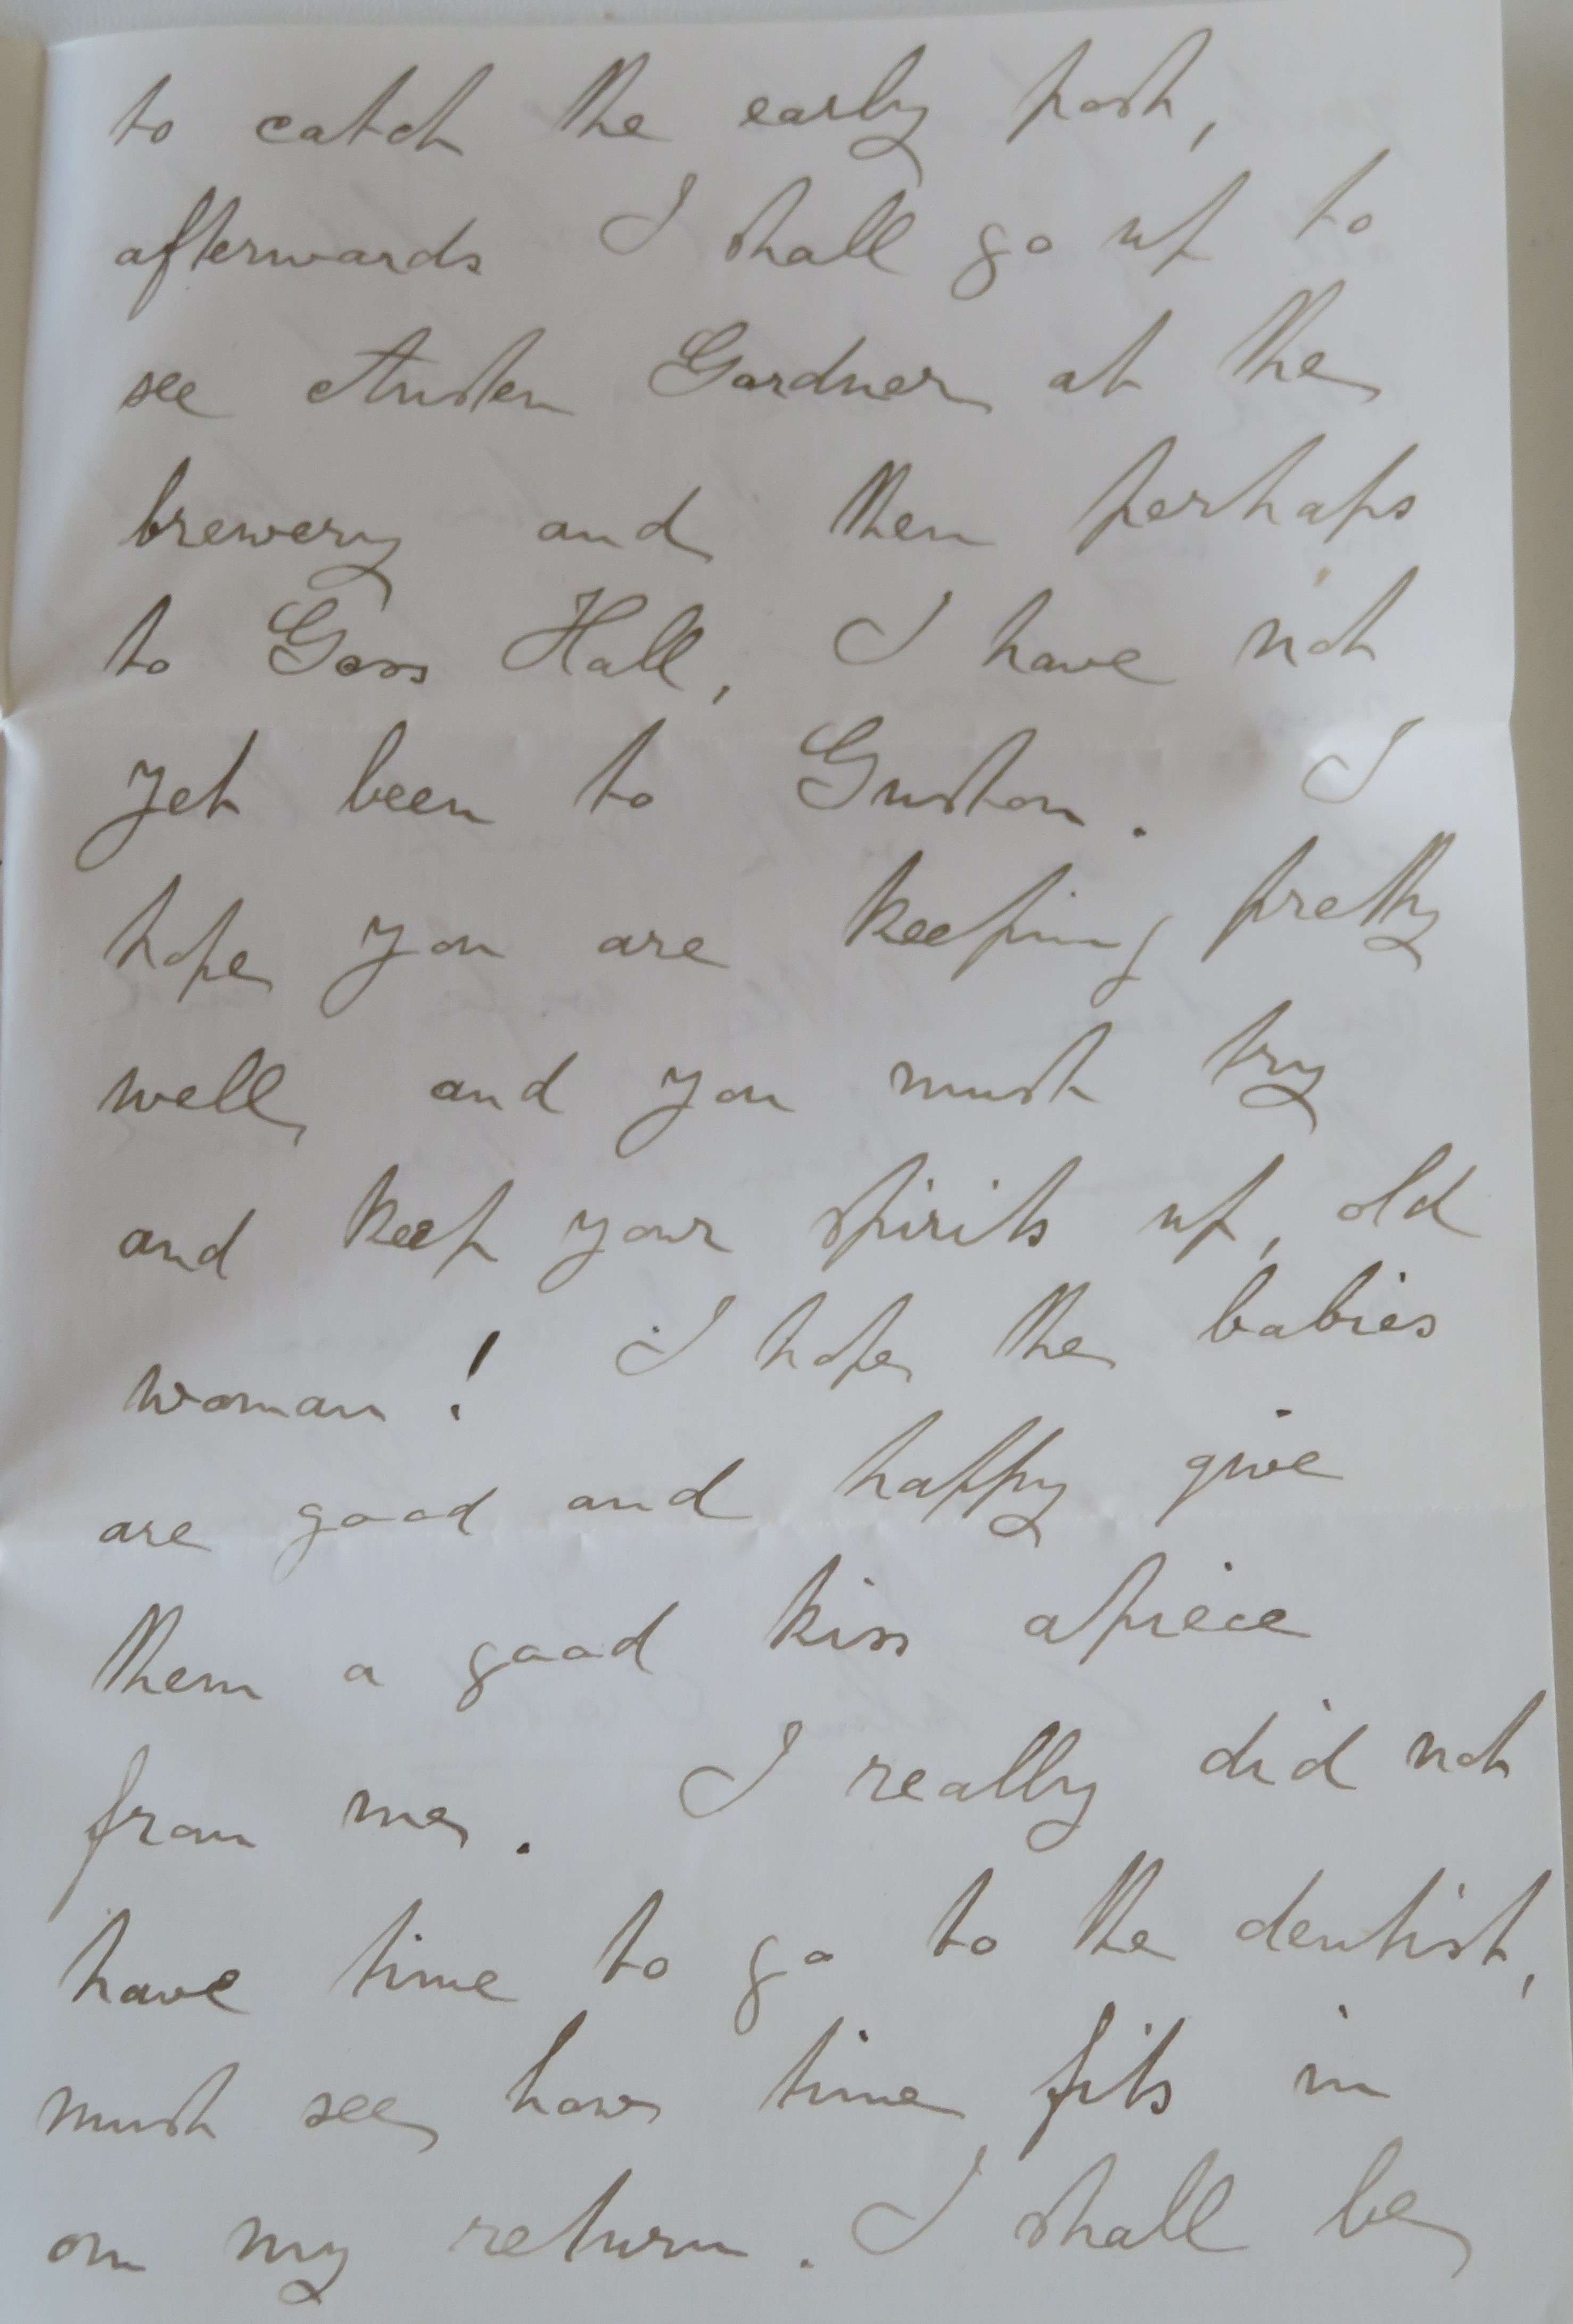 to catch the early post,
afterwards I shall go up to
see Austen Gardner at the
brewery and then perhaps
to Goss Hall, I have not
yet been to Guston. I
hope you are keeping pretty
well and you must try
and keep your spirits up, old
woman! I hope the babies
are good and happy give
them a good kiss apiece
from me. I really did not
have time to go to the dentist,
must see how time fits in
on my return. I shall be